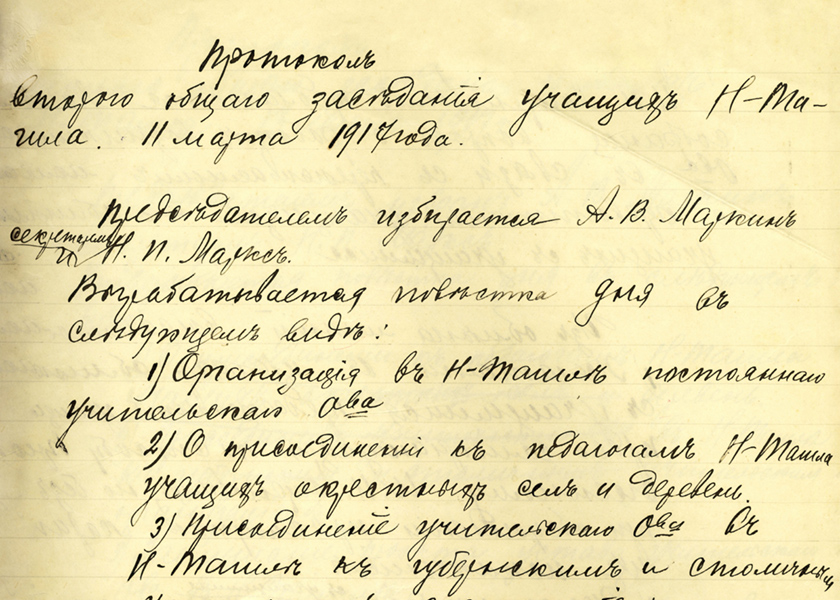 Протоколъ
второго общаго засѣданія учащихъ Н-Та-
гила. 11 марта 1917 года.
Предсѣдателемъ избирается А. В. Маркинъ
секретаремъ
Н. П. Марксъ.
Вырабатывается повѣстка дня въ
слѣдующемъ видѣ:
1) Организація въ Н-Тагилѣ постояннаго
учительскаго О-ва
2) О присоединеніи къ педагогамъ Н-Тагила
учащихъ окрестныхъ селъ и деревень.
3) Присоединеніе учительскаго О-ва въ
Н-Тагилѣ къ губернскимъ и столичнымъ